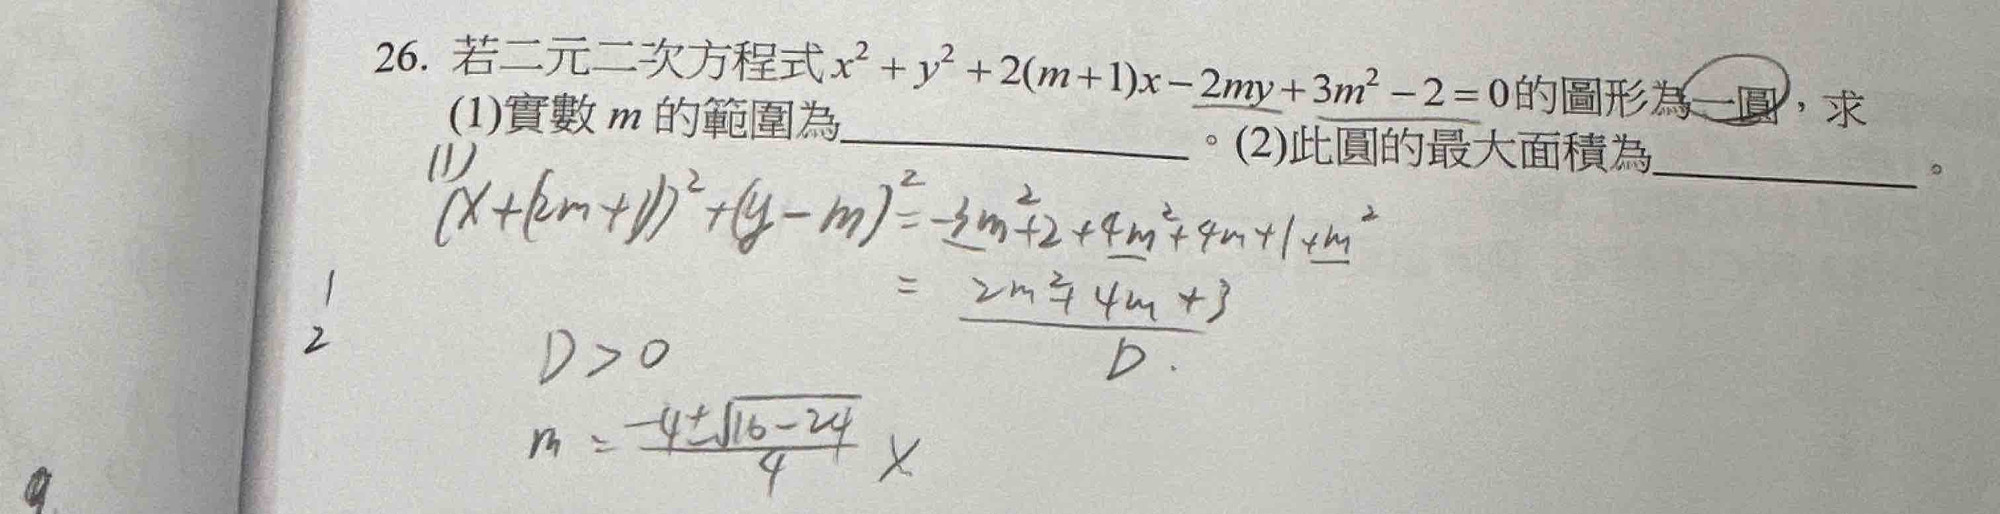 26. 若二元二次方程式x²+y²+2(m+1)x-2my+3m²-2=0的圖形為一圓,求
(1)實數 m 的範圍為____________。(2)此圓的最大面積為____________。
(1)
(x+(2m+1))²+(y-m)²=-3m²+2+4m²+4m+1+m²
= 2m²+4m+3
1
2
D>0
D.
m = \frac{-4±\sqrt{16-24}}{4} ×
9